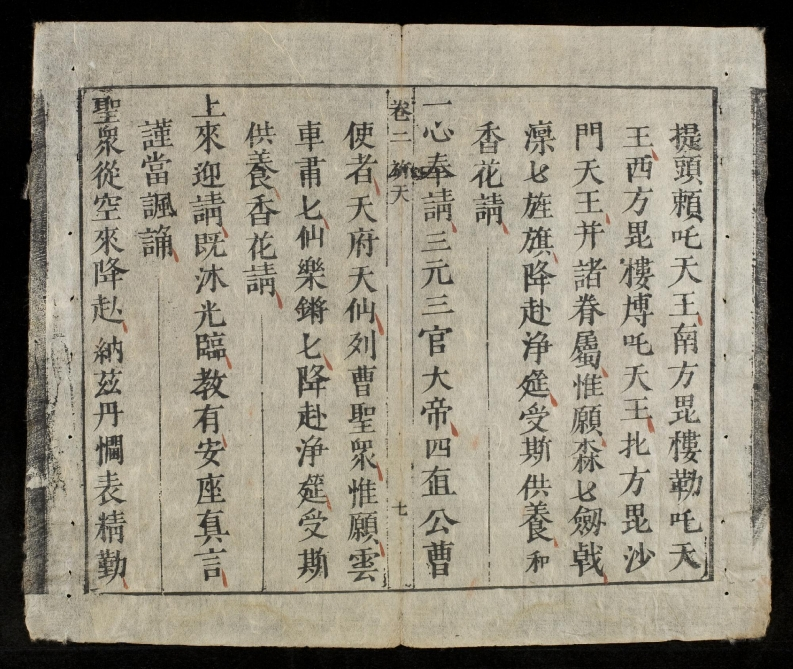 提頭賴吒天王南方毘樓勒吒天
王西方毘樓博吒天王北方毘沙
門天王并諸眷屬惟願森匕劔戟
凜匕旌旗降赴淨筵受斯供養和
香花請
一心奉請三元三官大帝四直公曹
卷二 天 七
使者天府天仙列曹聖眾惟願雲
車肅匕仙樂鏘匕降赴淨筵受斯
供養香花請
上來迎請既沐光臨教有安座真言
謹當諷誦
聖眾從空來降赴納茲丹悃表精勤